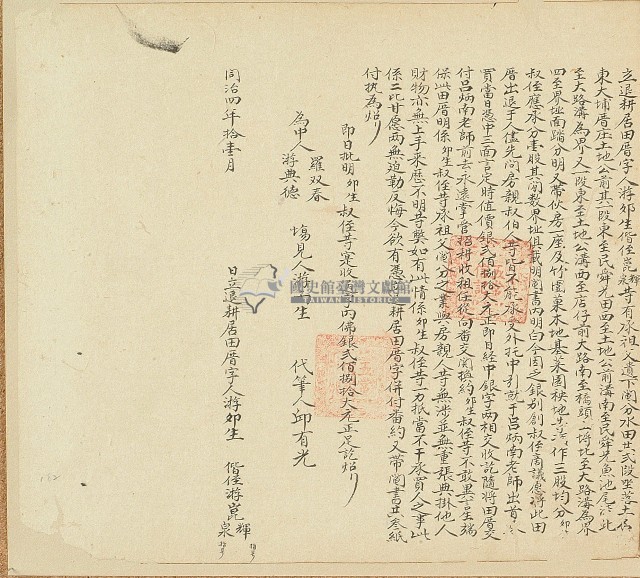 立退耕居田厝字人游卯生偕侄崑輝泉等有承祖父遺下鬮分水田共弍段坐落土
東大埔厝庄土地公前其一段東至民舜九田四至土地公前溝南至民舜光魚池尾
至大路溝為界又一段東至土地公溝西至店仔前大路南至橋頭埤北至大路溝為界
四至界址面踏分明又帶伙房一座及竹圍菓木地基菜園秧地
叔侄應承分壹股其鬮數界址俱載明鬮書內明白今因乏銀別創叔侄商議愿將此田
厝出退于人儘先問房親叔伯人等皆不能承受外托中引就于呂炳南老師出首
買當日憑中三面言定時值價銀弍佰捌拾大元正即日經中銀字兩相交收訖隨將田厝交
付呂炳南老師前去永遠掌管招耕收租任從向番交開換約卯生叔侄等不敢異言生端
保此田厝明係卯生叔侄等承祖父鬮分之業與房親人等無涉並無重張典掛他人
財物亦無上手來歷不明等獘如有此情係卯生叔侄等一力抵當不干承買人之事此
係二比甘愿兩無迫勒反悔今欲有憑立退耕居田厝字併付番約又帶鬮書共叁紙
付執為炤
即日批明卯生叔侄等寔收過字內佛銀弍佰捌拾大元正足訖炤
為中人 羅双春
游典德
塲見人游 生
代筆人邱有光
同治四年拾壹月 日立退耕居田厝字人游卯生
偕侄游崑輝泉
國史館臺灣文獻館
TAIWAN HISTORICA